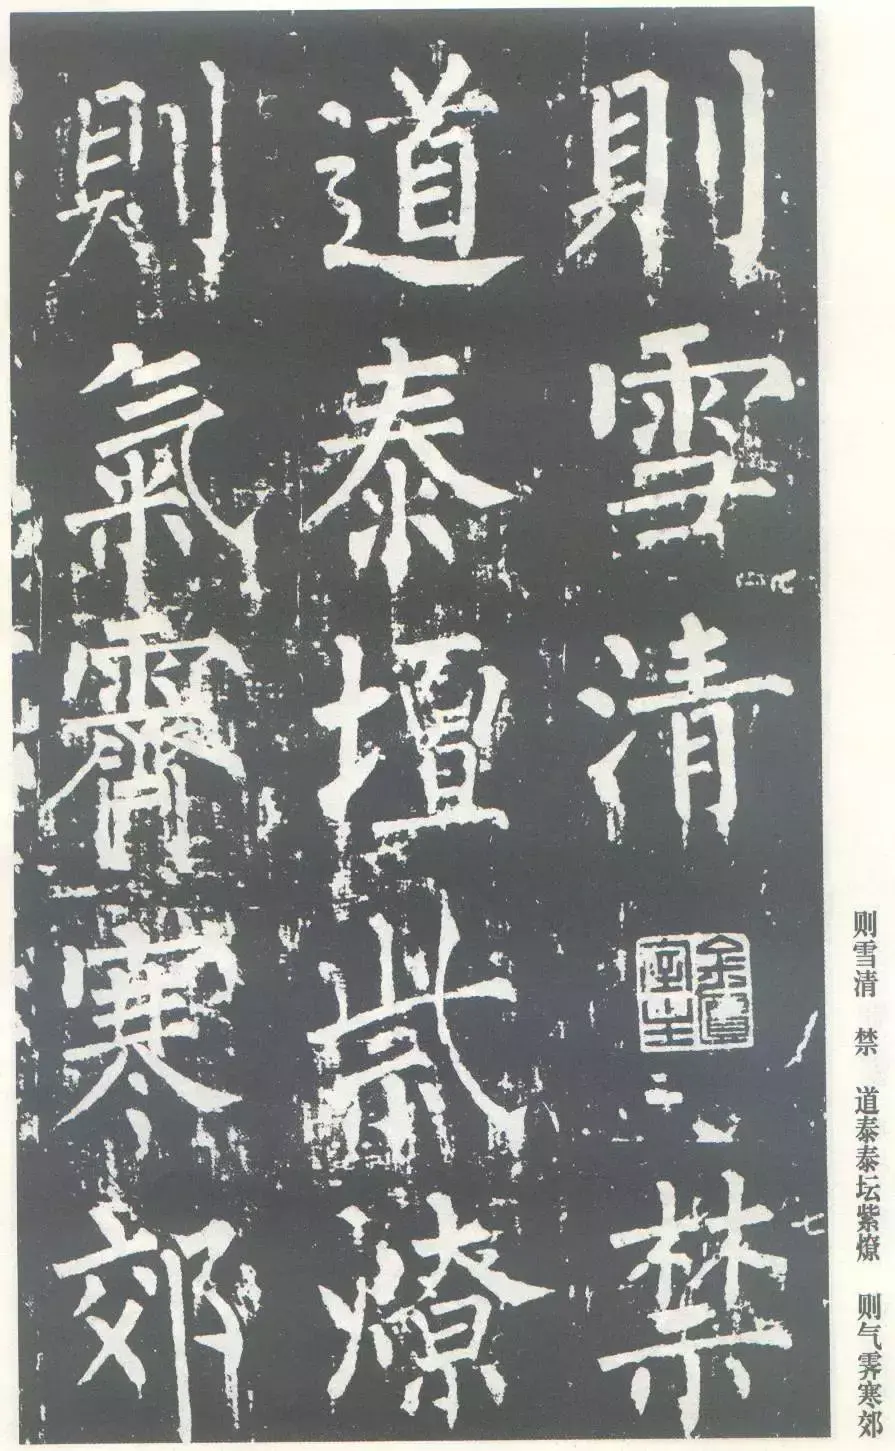 則雪清禁
道泰壇紫燎
則氣霽寒郊
则雪清 禁 道泰泰坛紫燎 则气霁寒郊